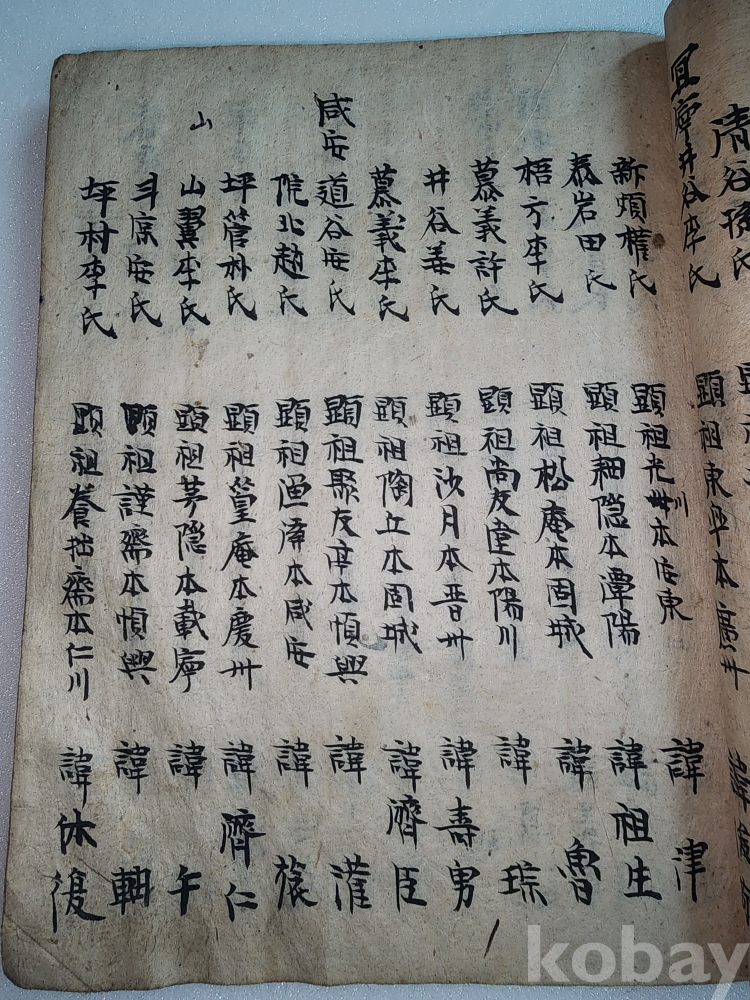 清谷孫氏
宜寧井谷李氏 顕祖東 本 州 諱
新煩權氏 顕祖光川本安東 諱津
泰岩田氏 顕祖耕隠本潭陽 諱祖生
梧方李氏 顕祖松庵本固城 諱魯
慕義許氏 顕祖尚友堂本陽川 諱琮
井谷姜氏 顕祖沙月本晋州 諱壽男
慕義李氏 顕祖陶丘本固城 諱濟臣
咸安 道谷安氏 顕祖聚友亭本順興 諱灌
院北趙氏 顕祖漁溪本咸安 諱旅
坪管朴氏 顕祖篁庵本慶州 諱濟仁
山
山翼李氏 顕祖茅隠本載寧 諱午
斗 安氏 顕祖謹齋本順興 諱軸
坪村李氏 顕祖養拙齋本仁川 諱休復
kobay